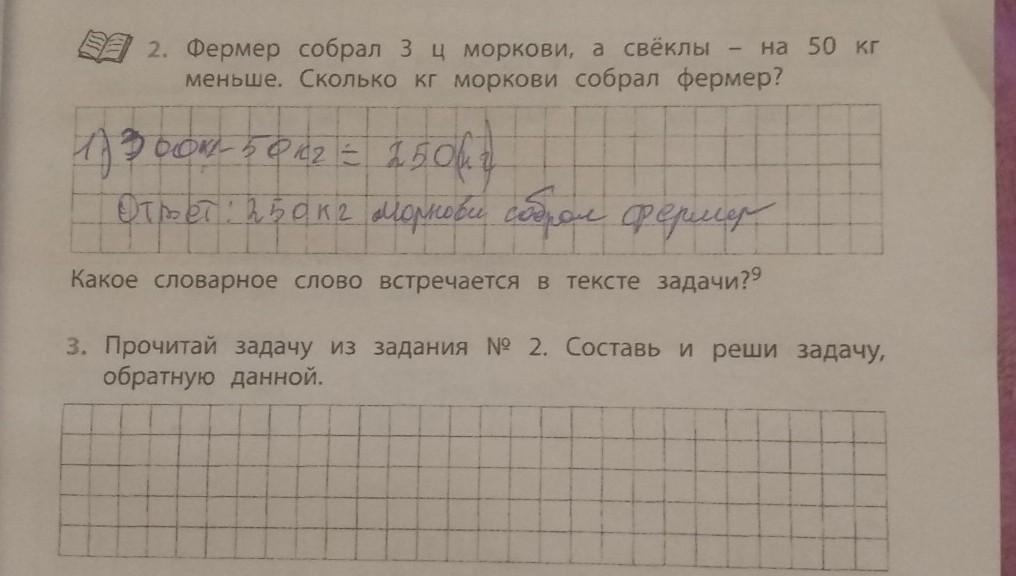 2. Фермер собрал 3 ц моркови, а свёклы – на 50 кг
меньше. Сколько кг моркови собрал фермер?
1) 300кг-50кг = 250(кг)
Ответ: 250кг моркови собрал фермер
Какое словарное слово встречается в тексте задачи?⁹
3. Прочитай задачу из задания № 2. Составь и реши задачу,
обратную данной.